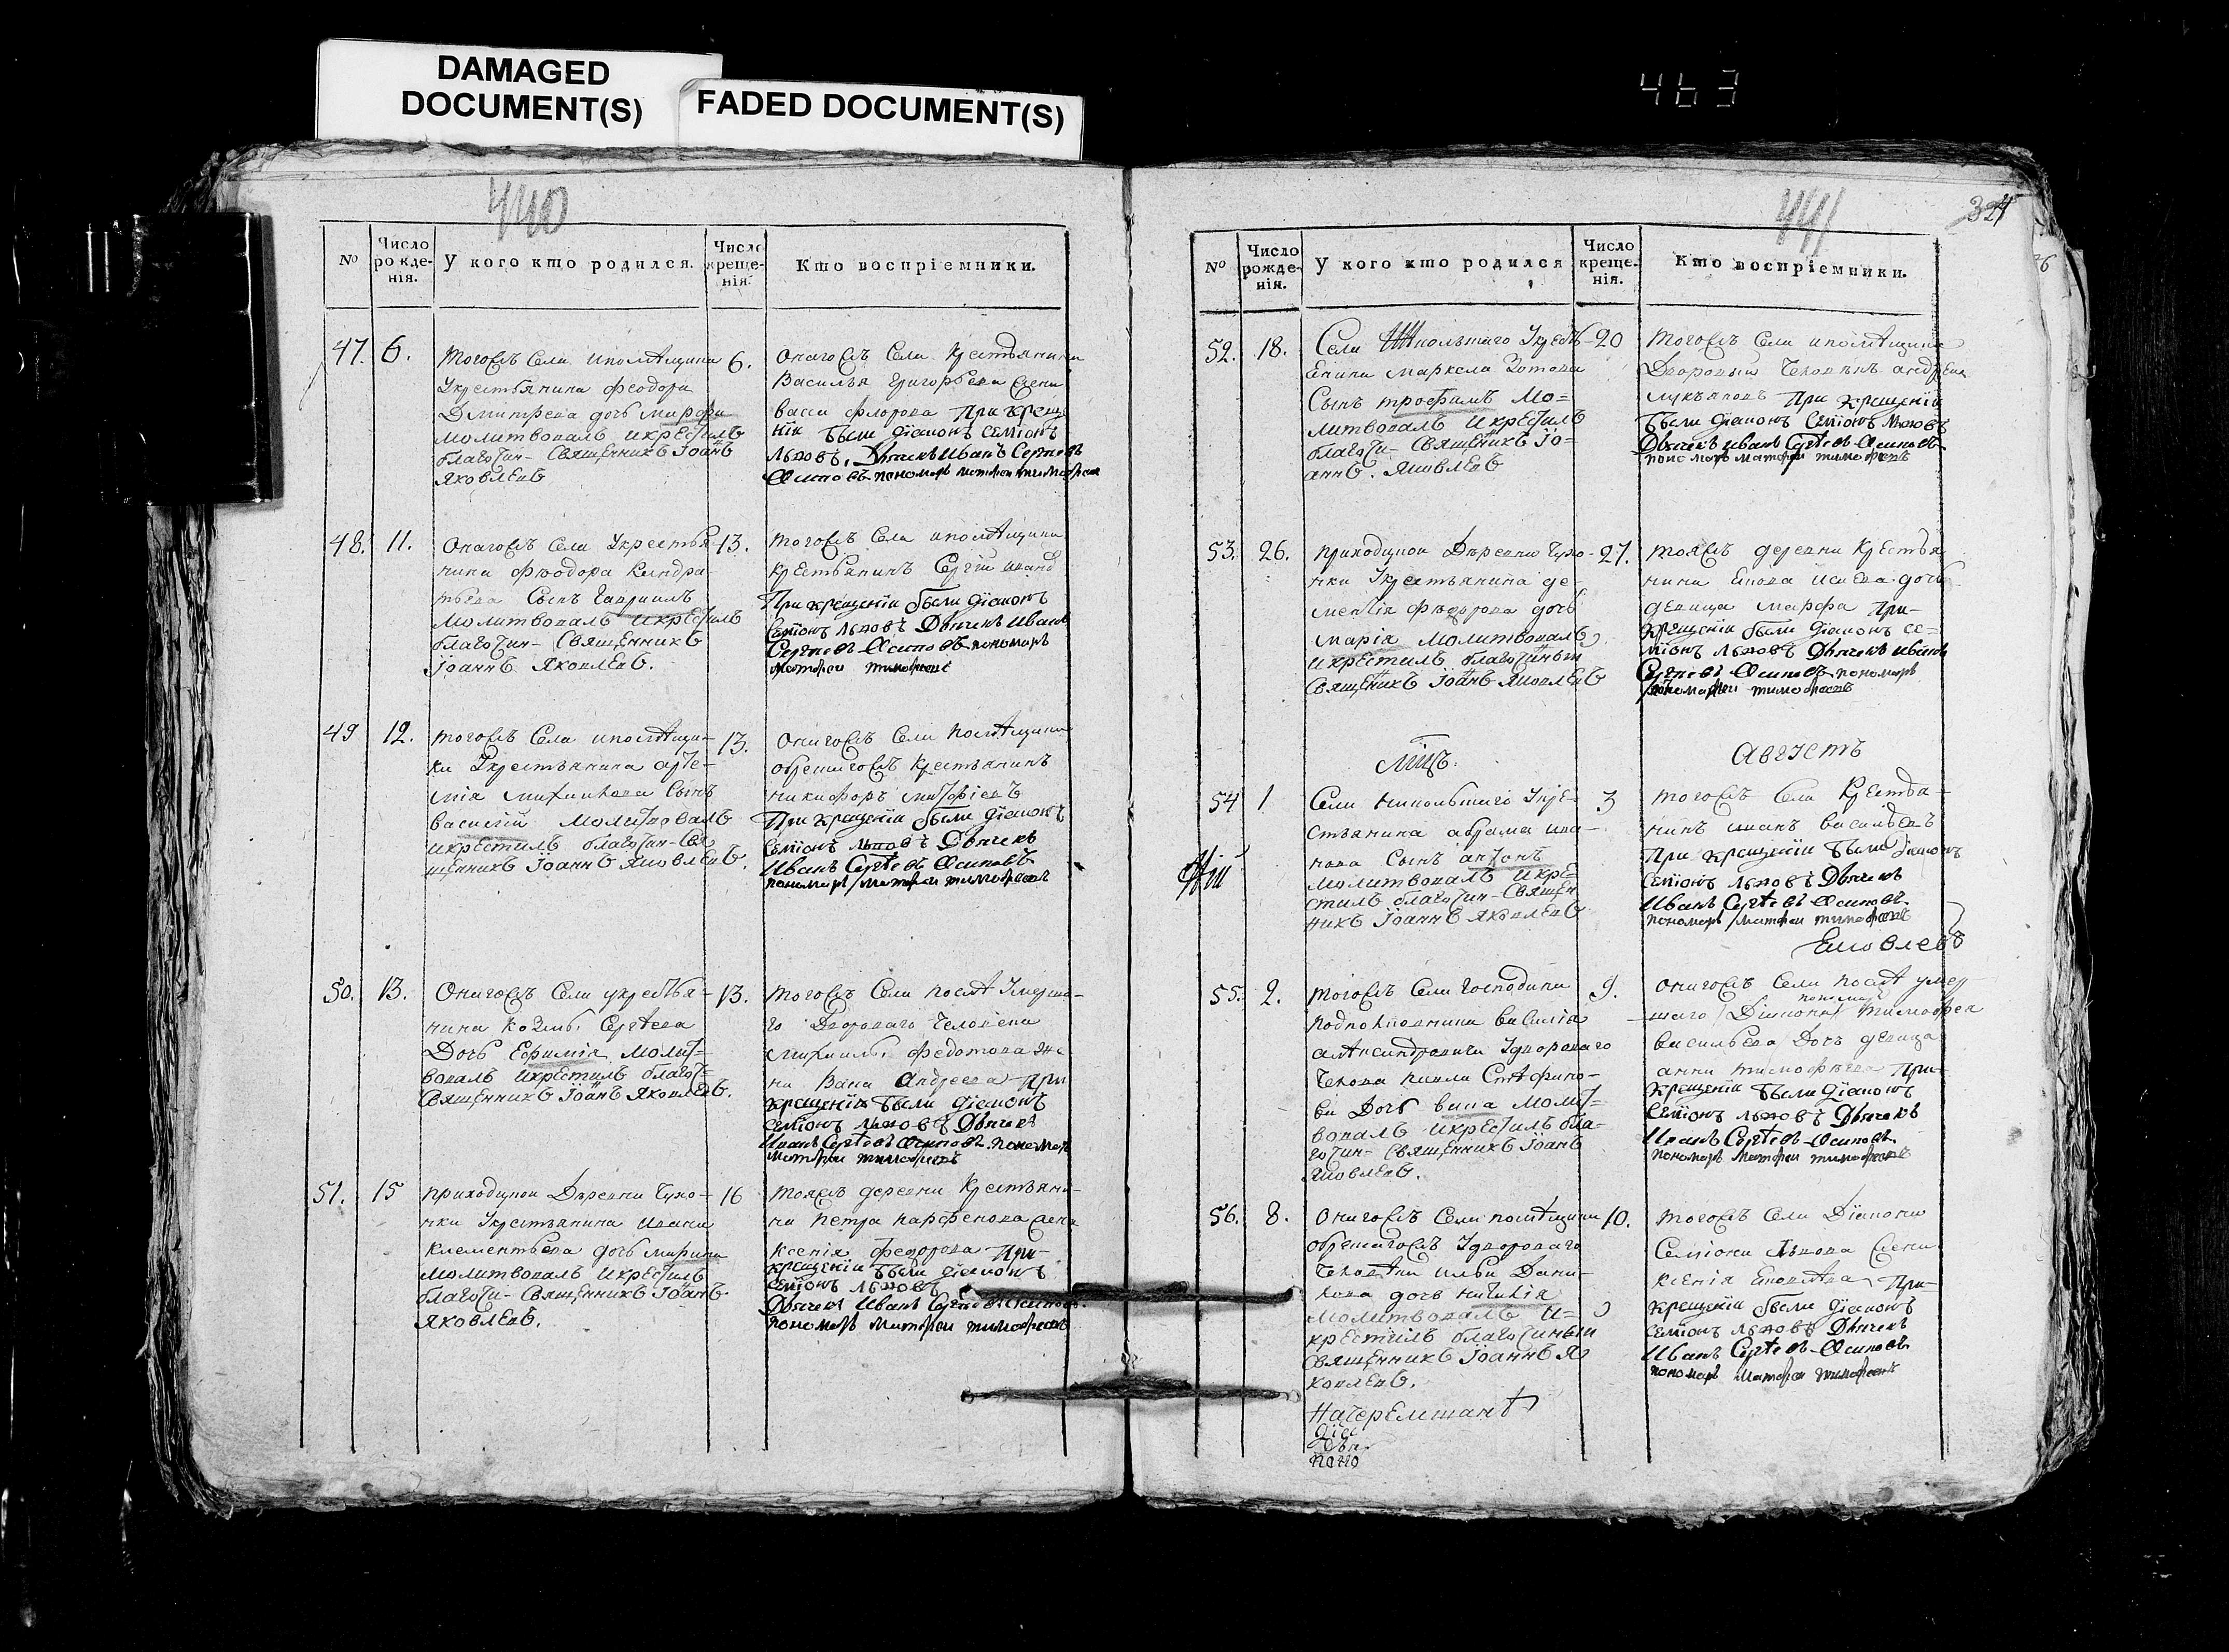 DAMAGED
DOCUMENT(S)
FADED DOCUMENT(S)
463
440
№
Число рожденія.
У кого кто родился.
Число крещенія.
Кто воспріемники.
47. 6.
тогожъ села
Укрестьянина феодора
Дмитрева дочь марфа
молитвовалъ икрестилъ
благочин- Священникъ Іоанъ
Яковлевъ
6.
Онагожъ села крестьянина
Василья григорьева жена
васса флорова При креще
ніи были діаконъ семіонъ
львовъ, Дьячекъ Иванъ Сергѣевъ
Осиповъ пономарь матфеи тимофеевъ
48. 11.
Онагожъ села Укрестья-
нина феодора кандра-
тьева сынъ гавріилъ
молитвовалъ икрестилъ
благочин- Священникъ
Іоаннъ Яковлевъ.
13.
тогожъ села
крестьянинъ Сергіи
При крещеніи были діаконъ
Семіонъ львовъ Дьячекъ Иванъ
Сергѣевъ Осиповъ пономарь
матфеи тимофеевъ
49 12.
тогожъ села
Укрестьянина арте-
мія сынъ
василій молитвовалъ
икрестилъ благочин- Свя
щенникъ Іоаннъ Яковлевъ.
13.
Онагожъ села
крестьянинъ
никифоръ
При крещеніи были діаконъ
Семіонъ львовъ Дьячекъ
Иванъ Сергѣевъ Осиповъ
пономарь матфеи тимофеевъ
50. 13.
Онагожъ села укрестья-
нина козмы Сергѣева
Дочь Ефимія молит-
вовалъ икрестилъ благоч-
Священникъ Іоанъ Яковлевъ.
13.
тогожъ села умерша-
го Двороваго человека
михаилы федотова же
на Васа Андреева При
крещеніи были діаконъ
семіонъ львовъ Дьячекъ
Иванъ Сергѣевъ Осиповъ пономарь
матфеи тимофеевъ
51. 15
приходцкои Деревни
Укрестьянина ивана
клементьева дочь марина
молитвовалъ икрестилъ
благочи- Священникъ Іоанъ
Яковлевъ.
16
тояжъ деревни крестьяни-
на петра парфенова жена
ксенія федорова При-
крещеніи были діаконъ
семіонъ львовъ
Дьячекъ Иванъ Сергѣевъ Осиповъ
пономарь матфеи тимофеевъ
441
324
№
Число рожденія.
У кого кто родился
Число крещенія.
Кто воспріемники.
52. 18.
Села Укресть-
янина маркела Зотова
Сынъ трофимъ Мо=
литвовалъ икрестилъ
благочи- Священикъ Іо-
аннъ. Яковлевъ
20
тогожъ села
Дворовыи человекъ андреи
лукьяновъ При крещеніи
были діаконъ Семіонъ львовъ
Дьячекъ иванъ Сергѣевъ Осиповъ
пономарь матфеи тимофеевъ
53. 26.
приходцкои Деревни
Укрестьянина де-
ментія феодорова дочь
марія молитвовалъ
икрестилъ благочиныи
Священикъ Іоанъ Яковлевъ
27.
тояжъ деревни крестья
нина дочь
девица марфа При-
крещеніи были діаконъ се=
міонъ львовъ Дьячекъ иванъ
Сергѣевъ Осиповъ пономарь
тимофеевъ
Мцъ.
Августъ
54 1
Села Укре-
стьянина абрама ива-
нова Сынъ антонъ
молитвовалъ икре-
стилъ благочин- Священ
никъ Іоаннъ Яковлевъ
3
тогожъ села крестья-
нинъ иванъ васильевъ
При крещеніи были діаконъ
семіонъ львовъ Дьячекъ
Иванъ Сергѣевъ Осиповъ
пономарь матфеи тимофеевъ
Яковлевъ
55. 2.
тогожъ села господина
подполковника василія
александровича Удвороваго
Дочь васа молит-
вовалъ икрестилъ бла-
гочин- Священникъ Іоанъ
Яковлевъ.
9.
Онагожъ села умер
шаго пономаря тимофея
васильева Дочь девица
анна тимофеева При-
крещеніи были діаконъ
Семіонъ львовъ Дьячекъ
Иванъ Сергѣевъ Осиповъ
пономарь матфеи тимофеевъ
56. 8.
Онагожъ села
Удвороваго
ильи Дани-
лова дочь наталія
молитвовалъ и=
крестилъ благочиныи
Священникъ Іоаннъ Я
ковлевъ.
10.
тогожъ села Діакона
Семіона львова жена
ксенія При-
крещеніи были діаконъ
семіонъ львовъ Дьячекъ
Иванъ Сергѣевъ Осиповъ
пономарь матфеи тимофеевъ
діа
Дья
поно